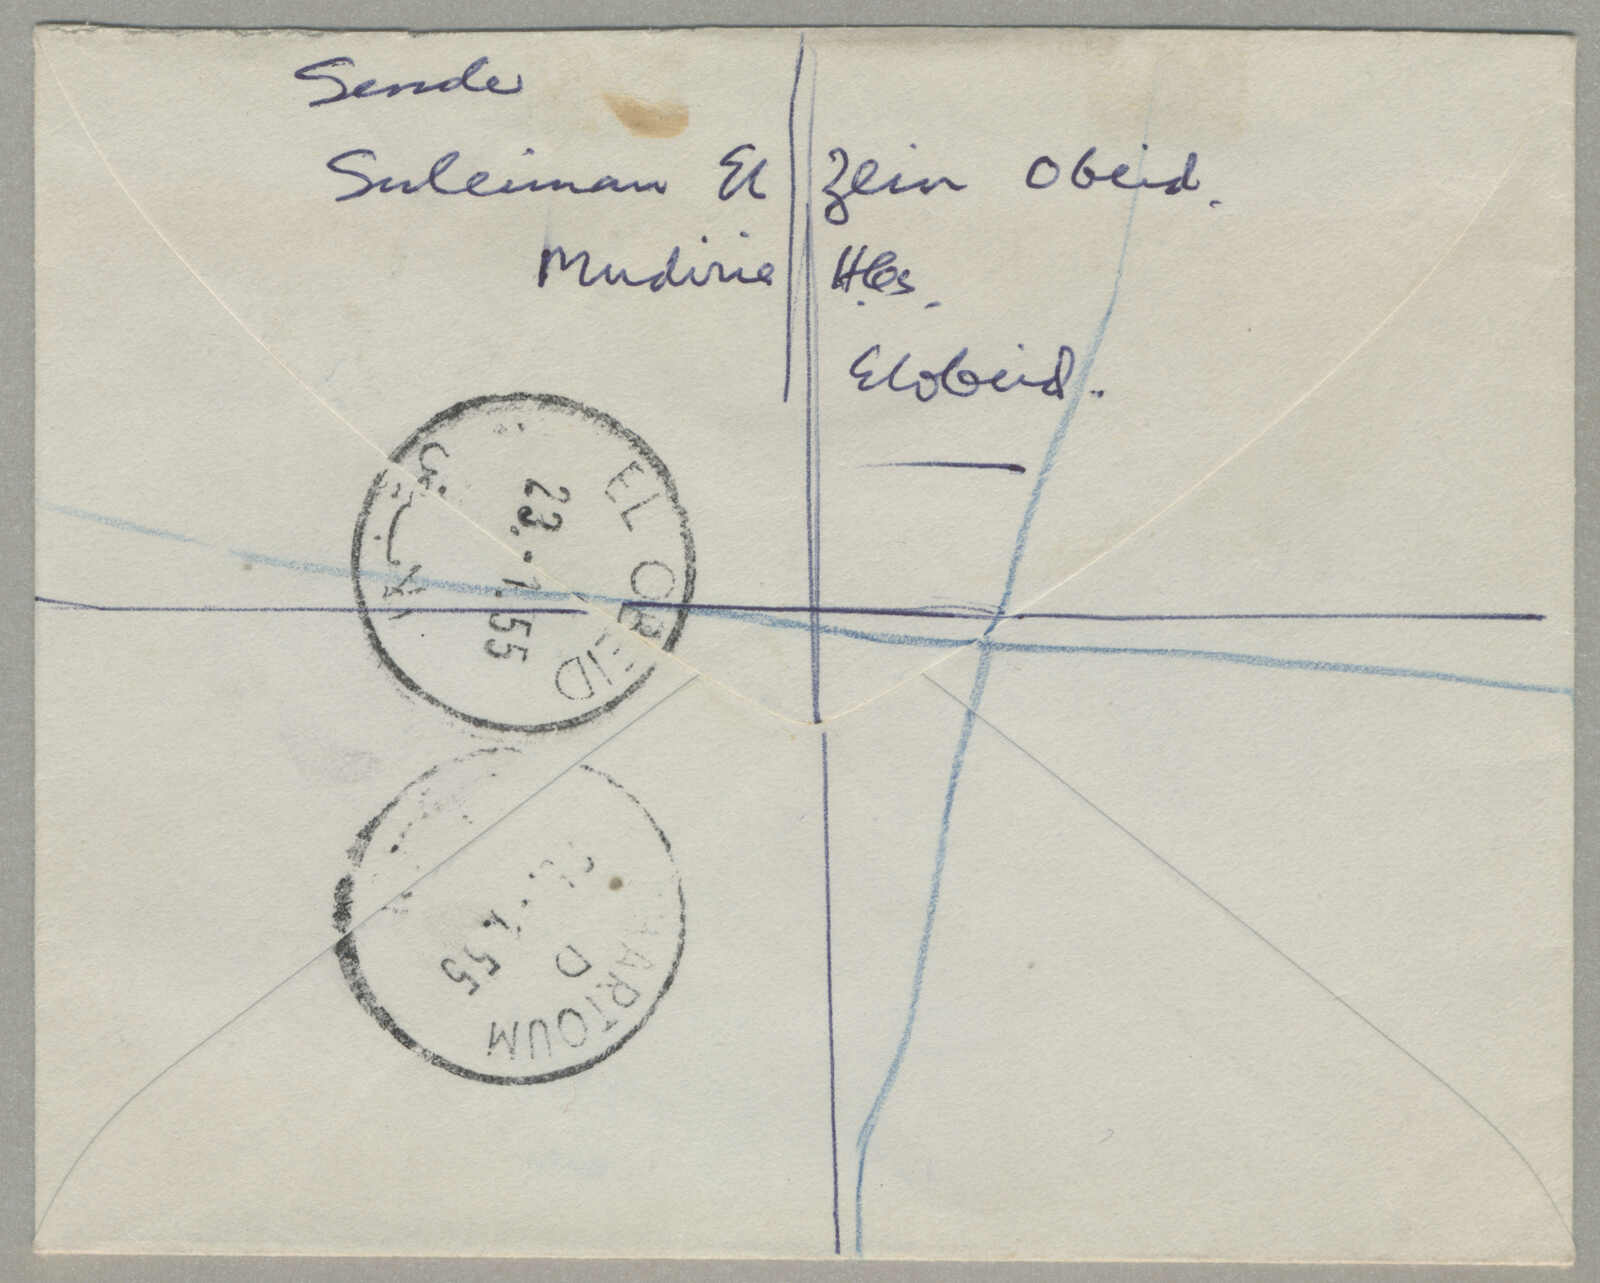 Sende
Suleiman El Zein Obeid.
Mudirie H.Qs.
Elobeid.
EL OBEID
23.-1.55
KHARTOUM
D
-1.55